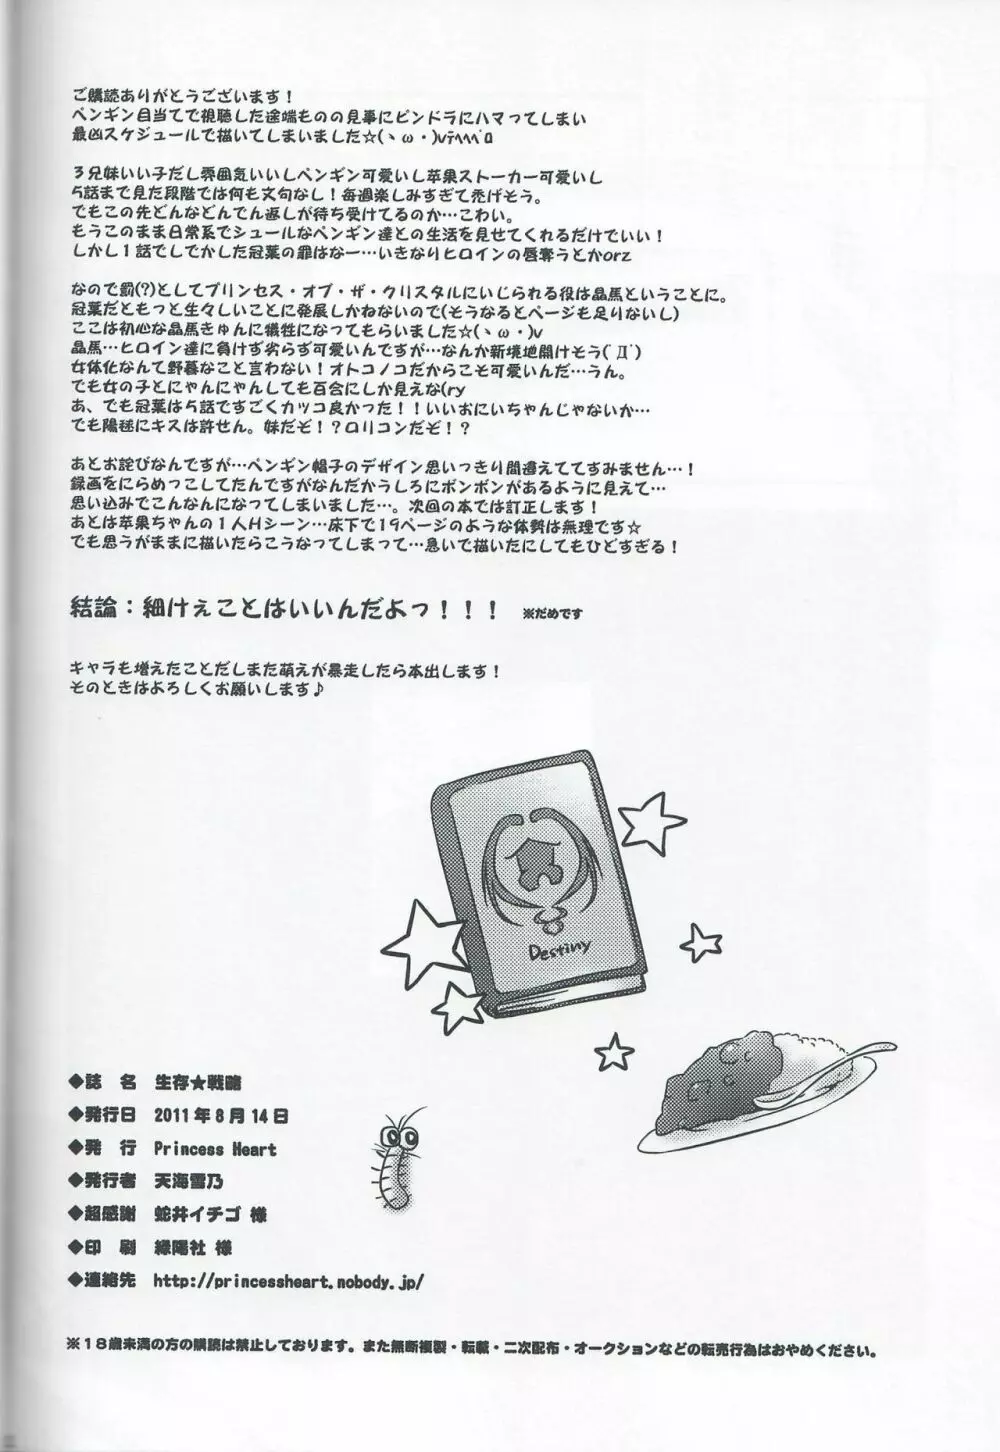 ご購読ありがとうございます！
ペンギン目当てで視聴した途端ものの見事にピンドラにハマってしまい
最凶スケジュールで描いてしまいました☆(ヽω・)vﾃﾍﾍﾍﾟﾛ
3兄妹いい子だし雰囲気いいしペンギン可愛いし苹果ストーカー可愛いし
5話まで見た段階では何も文句なし！毎週楽しみすぎて禿げそう。
でもこの先どんなどんでん返しが待ち受けてるのか…こわい。
もうこのまま日常系でシュールなペンギン達との生活を見せてくれるだけでいい！
しかし1話でしでかした冠葉の罪はなー…いきなりヒロインの唇奪うとかorz
なので罰(?)としてプリンセス・オブ・ザ・クリスタルにいじられる役は晶馬ということに。
冠葉だともっと生々しいことに発展しかねないので(そうなるとページも足りないし)
ここは初心な晶馬きゅんに犠牲になってもらいました☆(ヽω・)v
晶馬…ヒロイン達に負けず劣らず可愛いんですが…なんか新境地開けそう(ﾟДﾟ)
女体化なんて野暮なこと言わない！オトコノコだからこそ可愛いんだ…うん。
でも女の子とにゃんにゃんしても百合にしか見えな(ry
あ、でも冠葉は5話ですごくカッコ良かった！！いいおにいちゃんじゃないか…
でも陽毬にキスは許せん。妹だぞ！？ロリコンだぞ！？
あとお詫びなんですが…ペンギン帽子のデザイン思いっきり間違えててすみません…！
録画をにらめっこしてたんですがなんだかうしろにボンボンがあるように見えて…
思い込みでこんなんになってしまいました…。次回の本では訂正します！
あとは苹果ちゃんの1人Hシーン…床下で19ページのような体勢は無理です☆
でも思うがままに描いたらこうなってしまって…急いで描いたにしてもひどすぎる！
結論：細けぇことはいいんだよっ！！！ ※だめです
キャラも増えたことだしまた萌えが暴走したら本出します！
そのときはよろしくお願いします♪
Destiny
◆誌　名　生存★戦略
◆発行日　2011年8月14日
◆発　行　Princess Heart
◆発行者　天海雪乃
◆超感謝　蛇井イチゴ 様
◆印　刷　緑陽社 様
◆連絡先　http://princessheart.nobody.jp/
※18歳未満の方の購読は禁止しております。また無断複製・転載・二次配布・オークションなどの転売行為はおやめください。